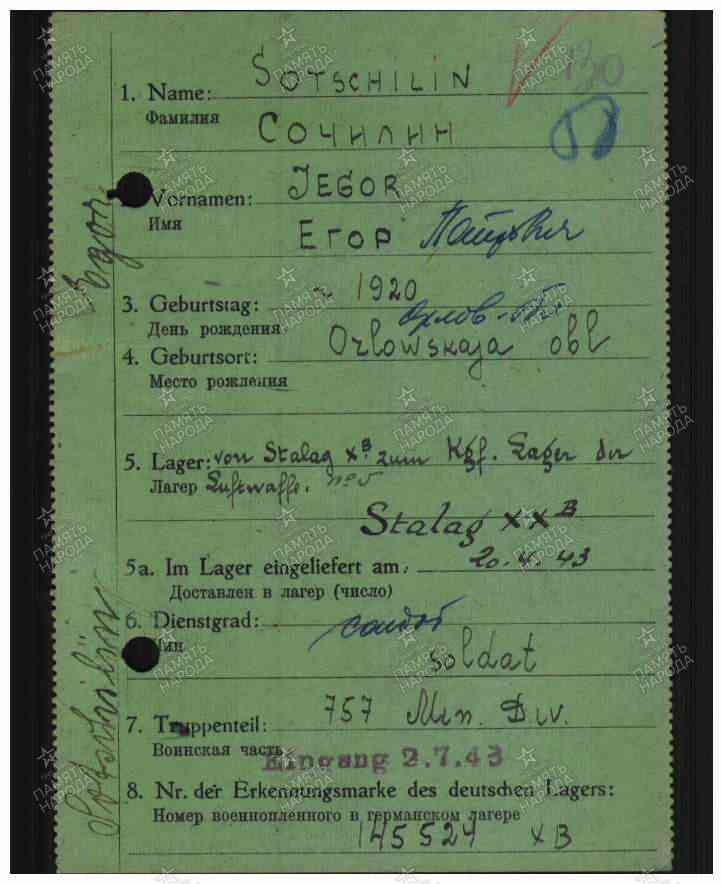 130
1. Name: SOTSCHILIN
Фамилия
СОЧИЛИН
Vornamen: JEGOR
Имя
ЕГОР
3. Geburtstag: 1920
День рождения
Орлов-
4. Geburtsort: Orlowskaja obl
Место рождения
5. Lager: von Stalag XB zum Kgf. Lager der
Лагер Luftwaffe. No 5
Stalag XXB
5a. Im Lager eingeliefert am: 20.4.43
Доставлен в лагер (число)
6. Dienstgrad:
Чин
soldat
7. Truppenteil: 757 Min. Div.
Воинская часть
Eingang 2.7.43
8. Nr. der Erkennungsmarke des deutschen Lagers:
Номер военнопленного в германском лагере
145524 XB
Egor
Sotschilin
ПАМЯТЬ НАРОДА